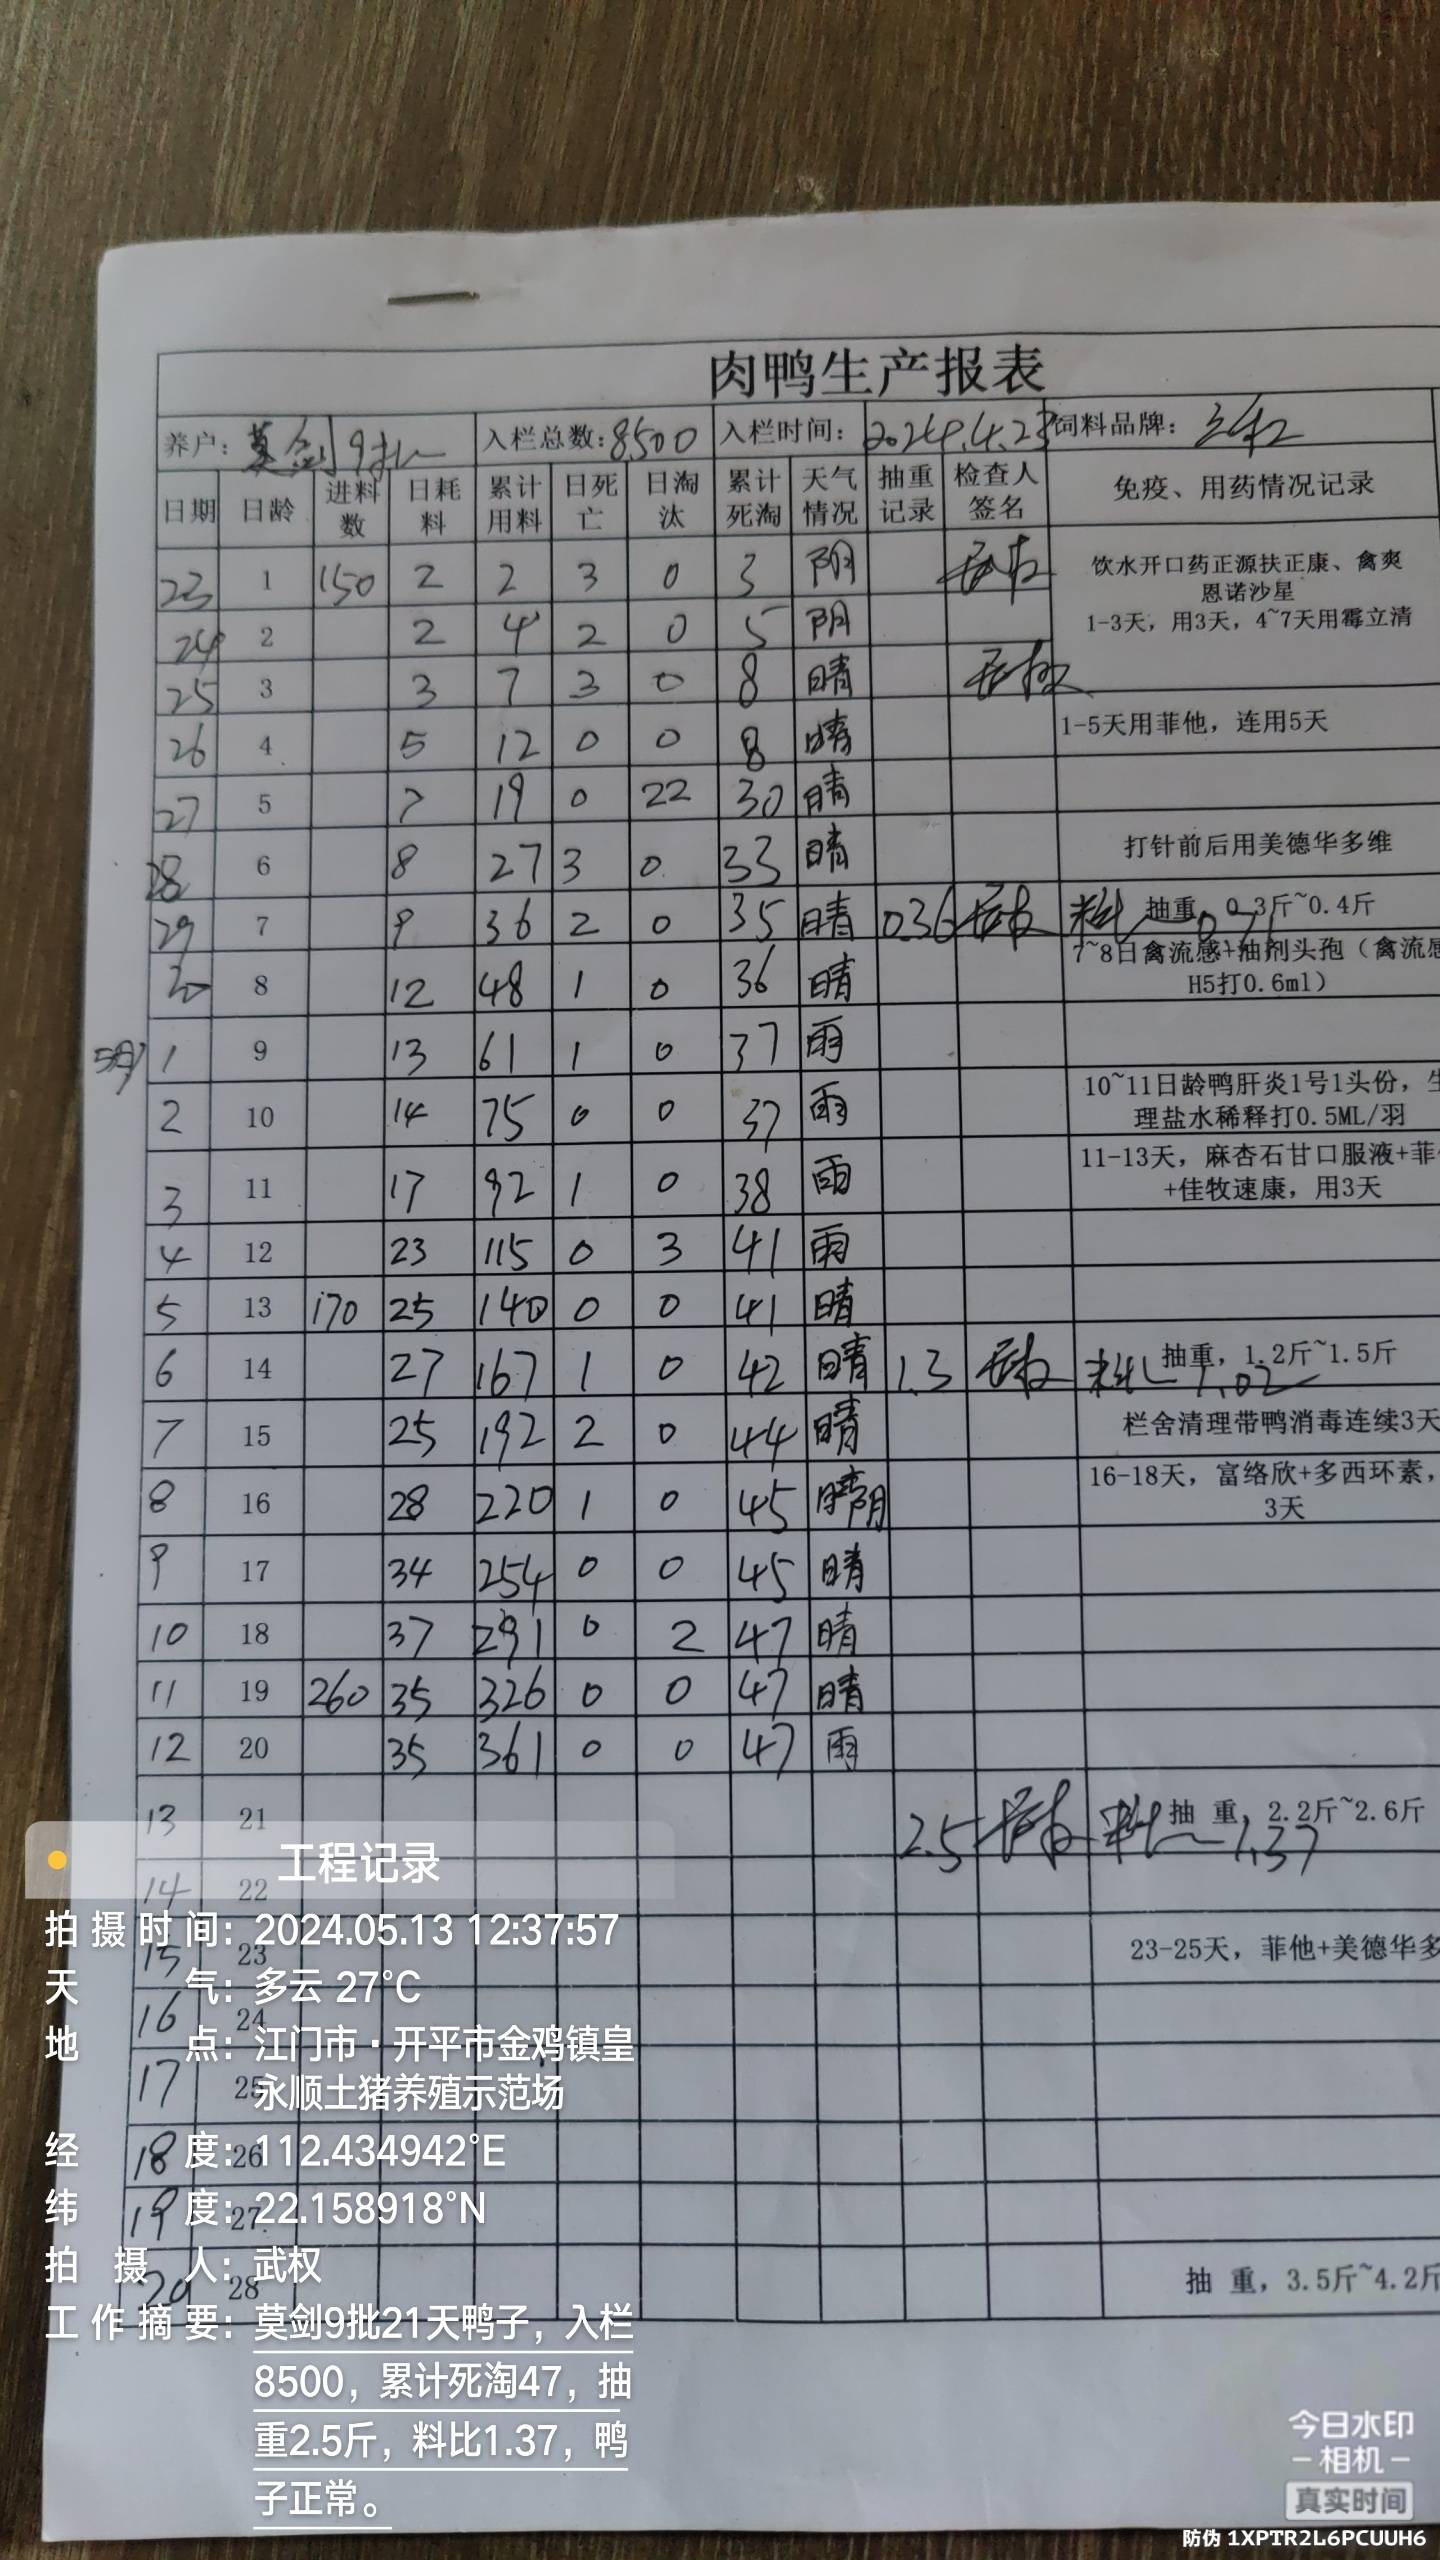 肉鸭生产报表
养户: 莫剑9批 入栏总数: 8500 入栏时间: 2024.4.23 饲料品牌:
日期 日龄 进料数 日耗料 累计用料 日死亡 日淘汰 累计死淘 天气情况 抽重记录 检查人签名 免疫、用药情况记录
23 1 150 2 2 3 0 3 阴 武权 饮水开口药正源扶正康、禽爽
恩诺沙星
24 2 2 4 2 0 5 阴 1-3天，用3天，4~7天用霉立清
25 3 3 7 3 0 8 晴 武权
26 4 5 12 0 0 8 晴 1-5天用菲他，连用5天
27 5 7 19 0 22 30 晴
28 6 8 27 3 0 33 晴 打针前后用美德华多维
29 7 9 36 2 0 35 晴 0.36 武权 抽重，0.3斤~0.4斤 料比 0.71
30 8 12 48 1 0 36 晴 7~8日禽流感+油剂头孢（禽流感
H5打0.6ml）
5月 1 9 13 61 1 0 37 雨
2 10 14 75 0 0 37 雨 10~11日龄鸭肝炎1号1头份，生
理盐水稀释打0.5ML/羽
3 11 17 92 1 0 38 雨 11-13天，麻杏石甘口服液+菲
+佳牧速康，用3天
4 12 23 115 0 3 41 雨
5 13 170 25 140 0 0 41 晴
6 14 27 167 1 0 42 晴 1.3 武权 抽重，1.2斤~1.5斤 料比 1.02
7 15 25 192 2 0 44 晴 栏舍清理带鸭消毒连续3天
8 16 28 220 1 0 45 晴阴 16-18天，富络欣+多西环素，
3天
9 17 34 254 0 0 45 晴
10 18 37 291 0 2 47 晴
11 19 260 35 326 0 0 47 晴
12 20 35 361 0 0 47 雨
13 21 2.5 武权 抽 重，2.2斤~2.6斤 料比 1.37
14 22
15 23 23-25天，菲他+美德华多
16 24
17 25
18 26
19 27
20 28 抽 重，3.5斤~4.2斤
工程记录
拍摄时间: 2024.05.13 12:37:57
天气: 多云 27°C
地点: 江门市·开平市金鸡镇皇
永顺土猪养殖示范场
经度: 112.434942°E
纬度: 22.158918°N
拍摄人: 武权
工作摘要: 莫剑9批21天鸭子，入栏
8500，累计死淘47，抽
重2.5斤，料比1.37，鸭
子正常。
今日水印
-相机-
真实时间
防伪 1XPTR2L6PCUUH6